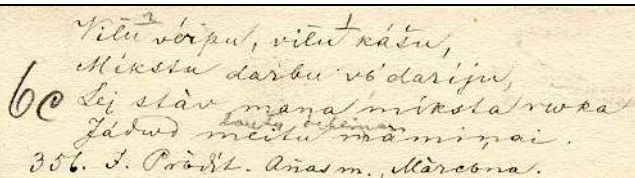 Vilu vērpu, vilu kāšu,
2 1
Mikstu darbu vō dariju,
6c
Lej stāv mana miksta rwka
Jādwd meitu māmiņai.
tauta
356. J. Prōdit. Añas m., Mārcona.